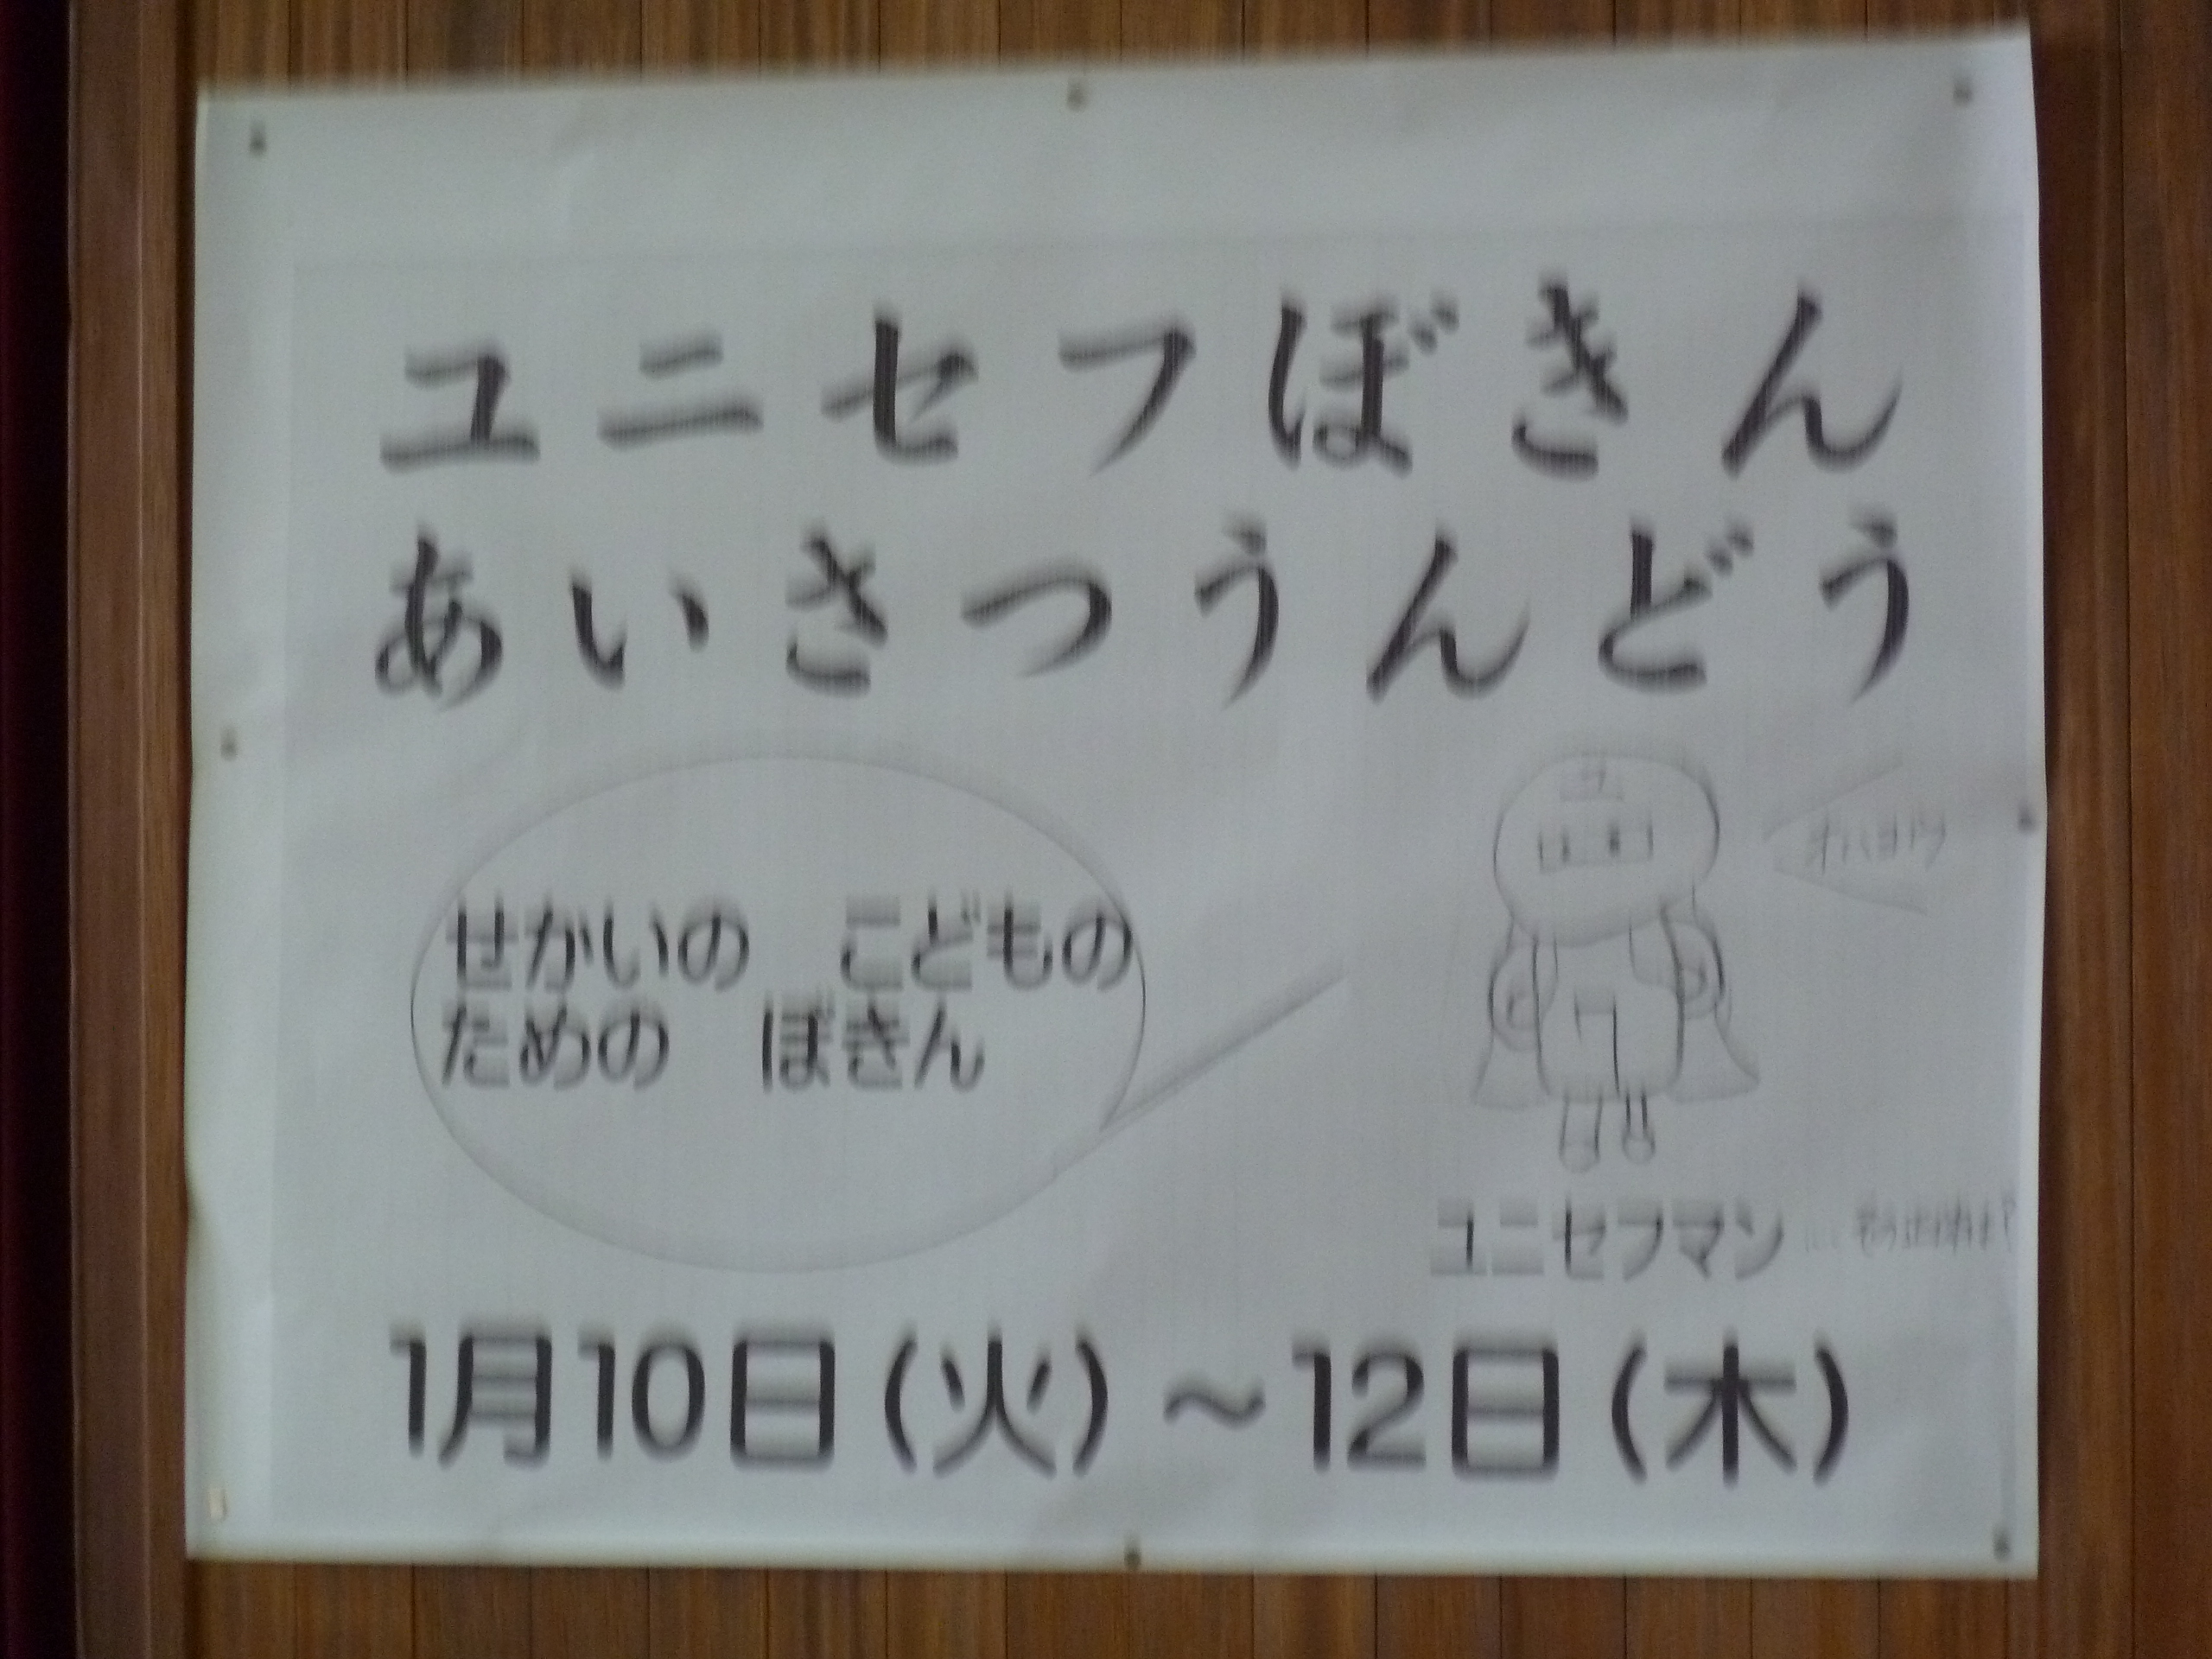 ユニセフぼきん
あいさつうんどう
せかいの　こどもの
ための　ぼきん
オハヨウ
ユニセフマン
1月10日（火）～12日（木）